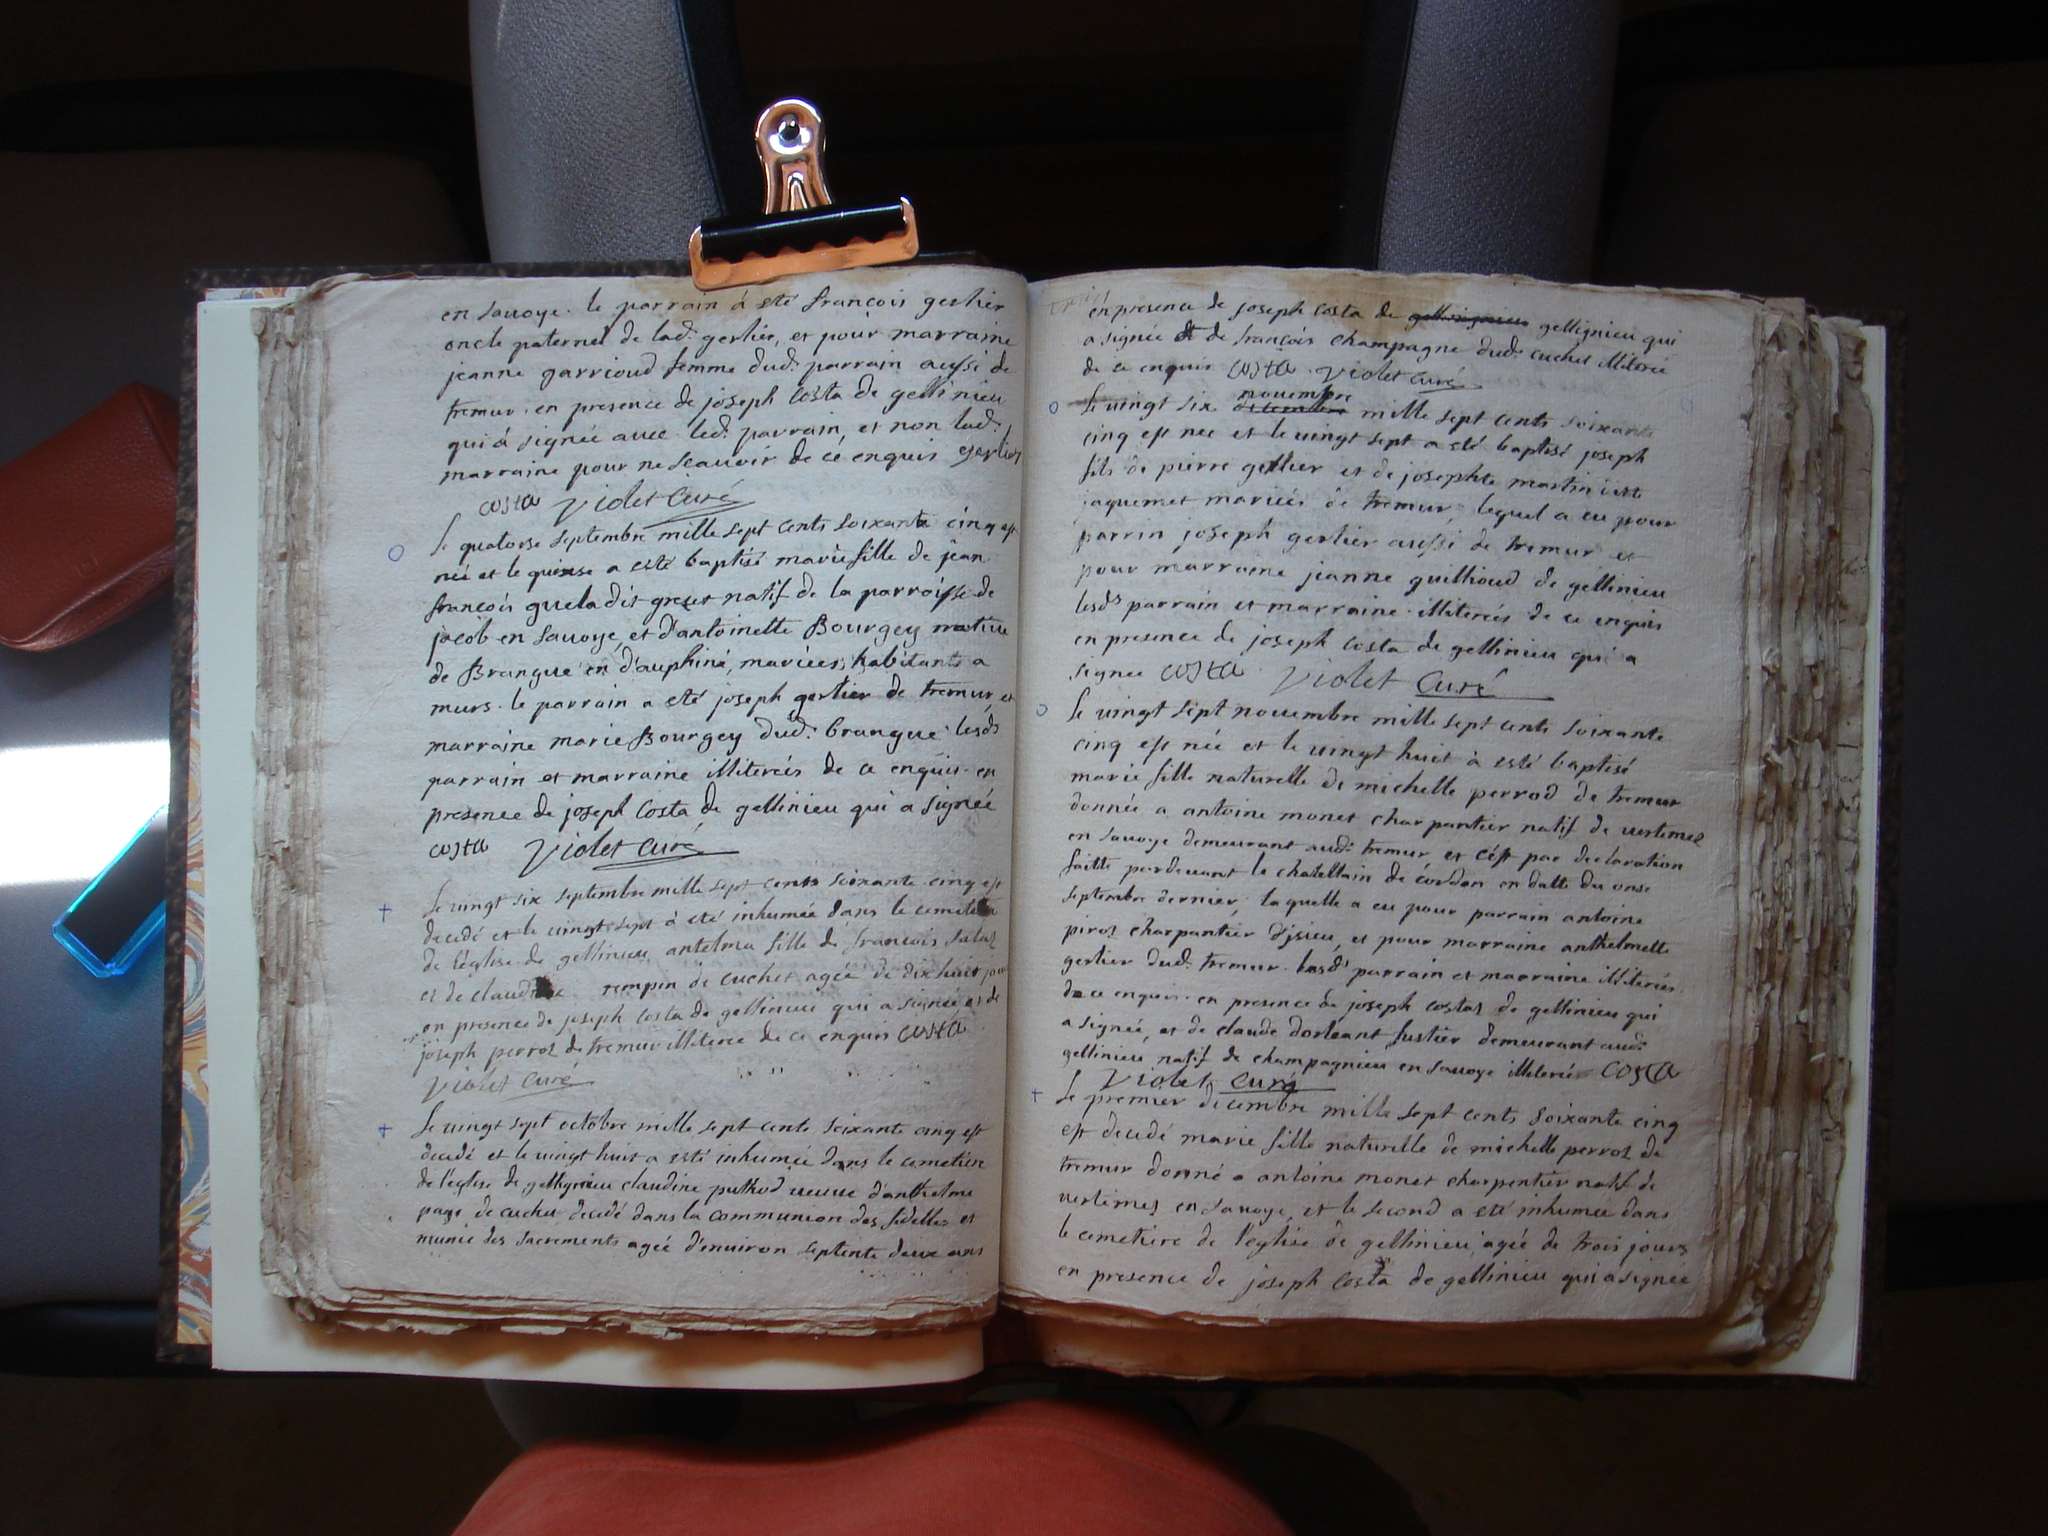 en savoye. le parrain à eté françois gerlier
oncle paternel de lad: gerlier, et pour marraine
jeanne garrioud femme dud: parrain aussi de
tremur. en presence de joseph Costa de gellinieu
qui à signée avec led: parrain, et non lad:
marraine pour ne scauoir de ce enquis gerlier
costa Violet Curé
Le quatorse septembre mille sept cents soixante cinq est
née et le quinse a esté baptisé marie fille de jean
françois gueladit greset natif de la parroisse de
jacob en sauoye, et d'antoinette Bourgey native
de Brangue en d'auphiné, mariées, habitants a
murs. le parrain a eté joseph gerlier de tremur, et
marraine marie Bourgey dud: brangue lesds
parrain et marraine illiterés de ce enquis. en
presence de joseph Costa de gellinieu qui a signée
costa Violet Curé
Le vingt six septembre mille sept cents soixante cinq est
decedé et le vingt sept à eté inhumée dans le
de l'eglise de gellinieu antelma fille de françois
et de rempin de cuchet agée de dix huit
en presence de joseph Costa de gellinieu qui a signée et de
joseph perroz de tremur illiteré de ce enquis costa
Violet Curé
Le vingt sept octobre mille sept cents soixante cinq est
decedé et le vingt huit a esté inhumée dans le cemetiere
de l'eglise de gellignieu claudine puthod veuve d'anthelme
page de cuchet decedé dans la communion des fidelles et
munie des sacrements agée d'enuiron septente deux ans
en presence de joseph Costa de gellignieu qui
a signée et de françois champagne dud: cuchet illiteré
de ce enquis costa. Violet curé
Le vingt six novembre decembre mille sept cents soixante
cinq est nee et le vingt sept a eté baptisé joseph
fils de pierre gerlier et de josephte martin
jaquemet mariées de tremur, lequel a eu pour
parrin joseph gerlier aussi de tremur et
pour marraine jeanne guillioud de gellinieu
lesds parrain et marraine illiterés de ce enquis
en presence de joseph Costa de gellinieu qui a
signee costa Violet Curé
Le vingt sept novembre mille sept cents soixante
cinq est née et le vingt huit à esté baptisé
marie fille naturelle de michelle perrod de tremur
donnée a antoine monet charpantier natif de vertemez
en savoye demeurant aud: tremur, et c'est par declaration
faitte pardevant le chatellain de cordon en datte du onse
septembre dernier, laquelle a eu pour parrain antoine
piroz charpantier d'jsieu, et pour marraine anthelmette
gerlier dud: tremur. lesds parrain et marraine illiterés
de ce enquis. en presence de joseph costaz de gellinieu qui
a signée, et de claude dorleant fustier demeurant aud:
gellinieu natif de champagnieu en savoye illiteré costa
Violet curé
Le premier decembre mille sept cents soixante cinq
est decedé marie fille naturelle de michelle perroz de
tremur donné a antoine monet charpentier natif de
vertemez en savoye, et le second a eté inhumée dans
le cemetiere de l'eglise de gellinieu agée de trois jours
en presence de joseph Costa de gellinieu qui a signée